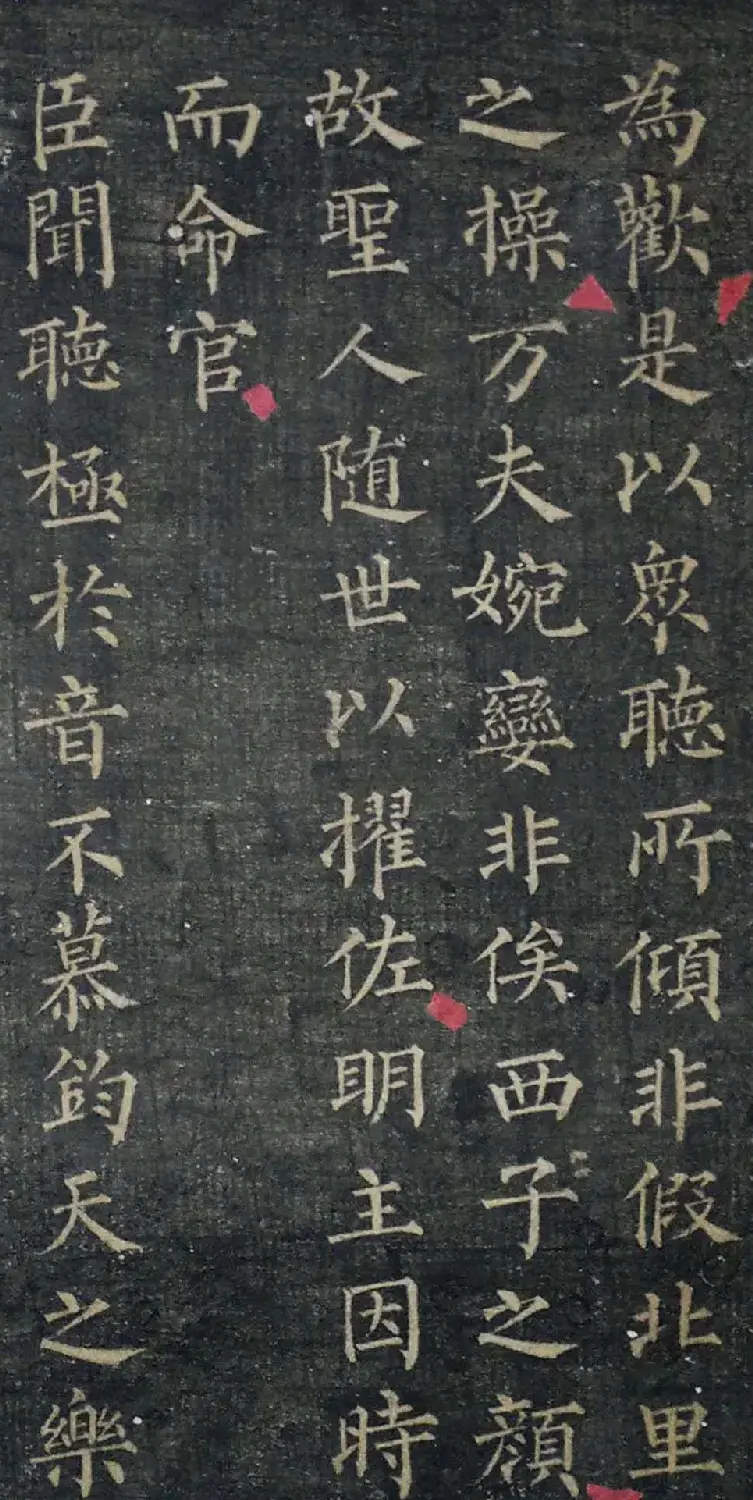 為歡是以眾聽所傾非假北里
之操万夫婉孌非俟西子之顏
故聖人随世以擢佐明主因時
而命官
臣聞聽極於音不慕鈞天之樂